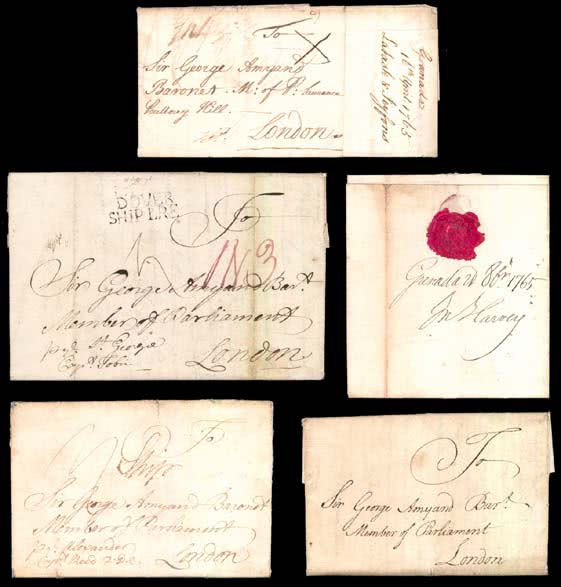 To
Sir George Amyand
Baronet M: of P:
Hill
London
Grenada
16th April 1765
DOVER
SHIP LRE
To
1N3
Sir George Amyand Bart.
Member of Parliament
pr St. George
London
Capt. Tobin
Grenada 21 8br 1765
Jn Harvey
To
Ship
Sir George Amyand Baronet
Member of Parliament
pr Alexander
Capt Reed London
To
Sir George Amyand Bart.
Member of Parliament
London